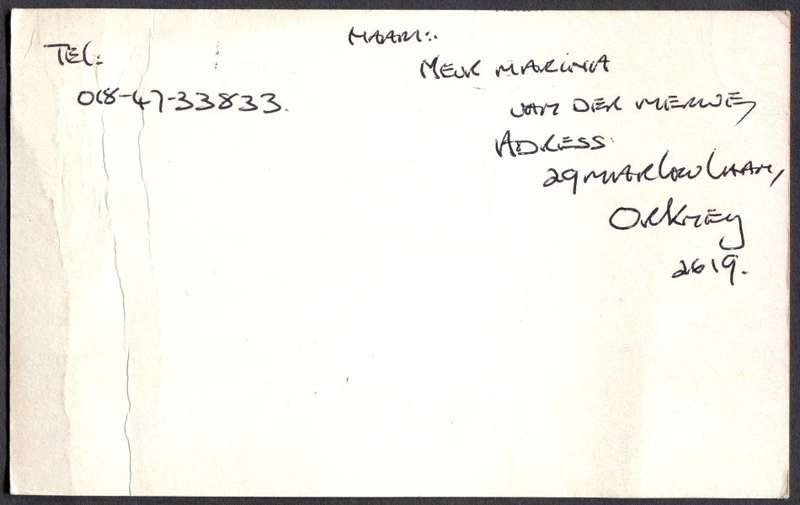 TEL:
018-47-33833.
NAAM:.
MEJR MARINA
VAN DER MERWE,
ADRESS
29 MARLOWLAAN,
ORKNEY
2619.